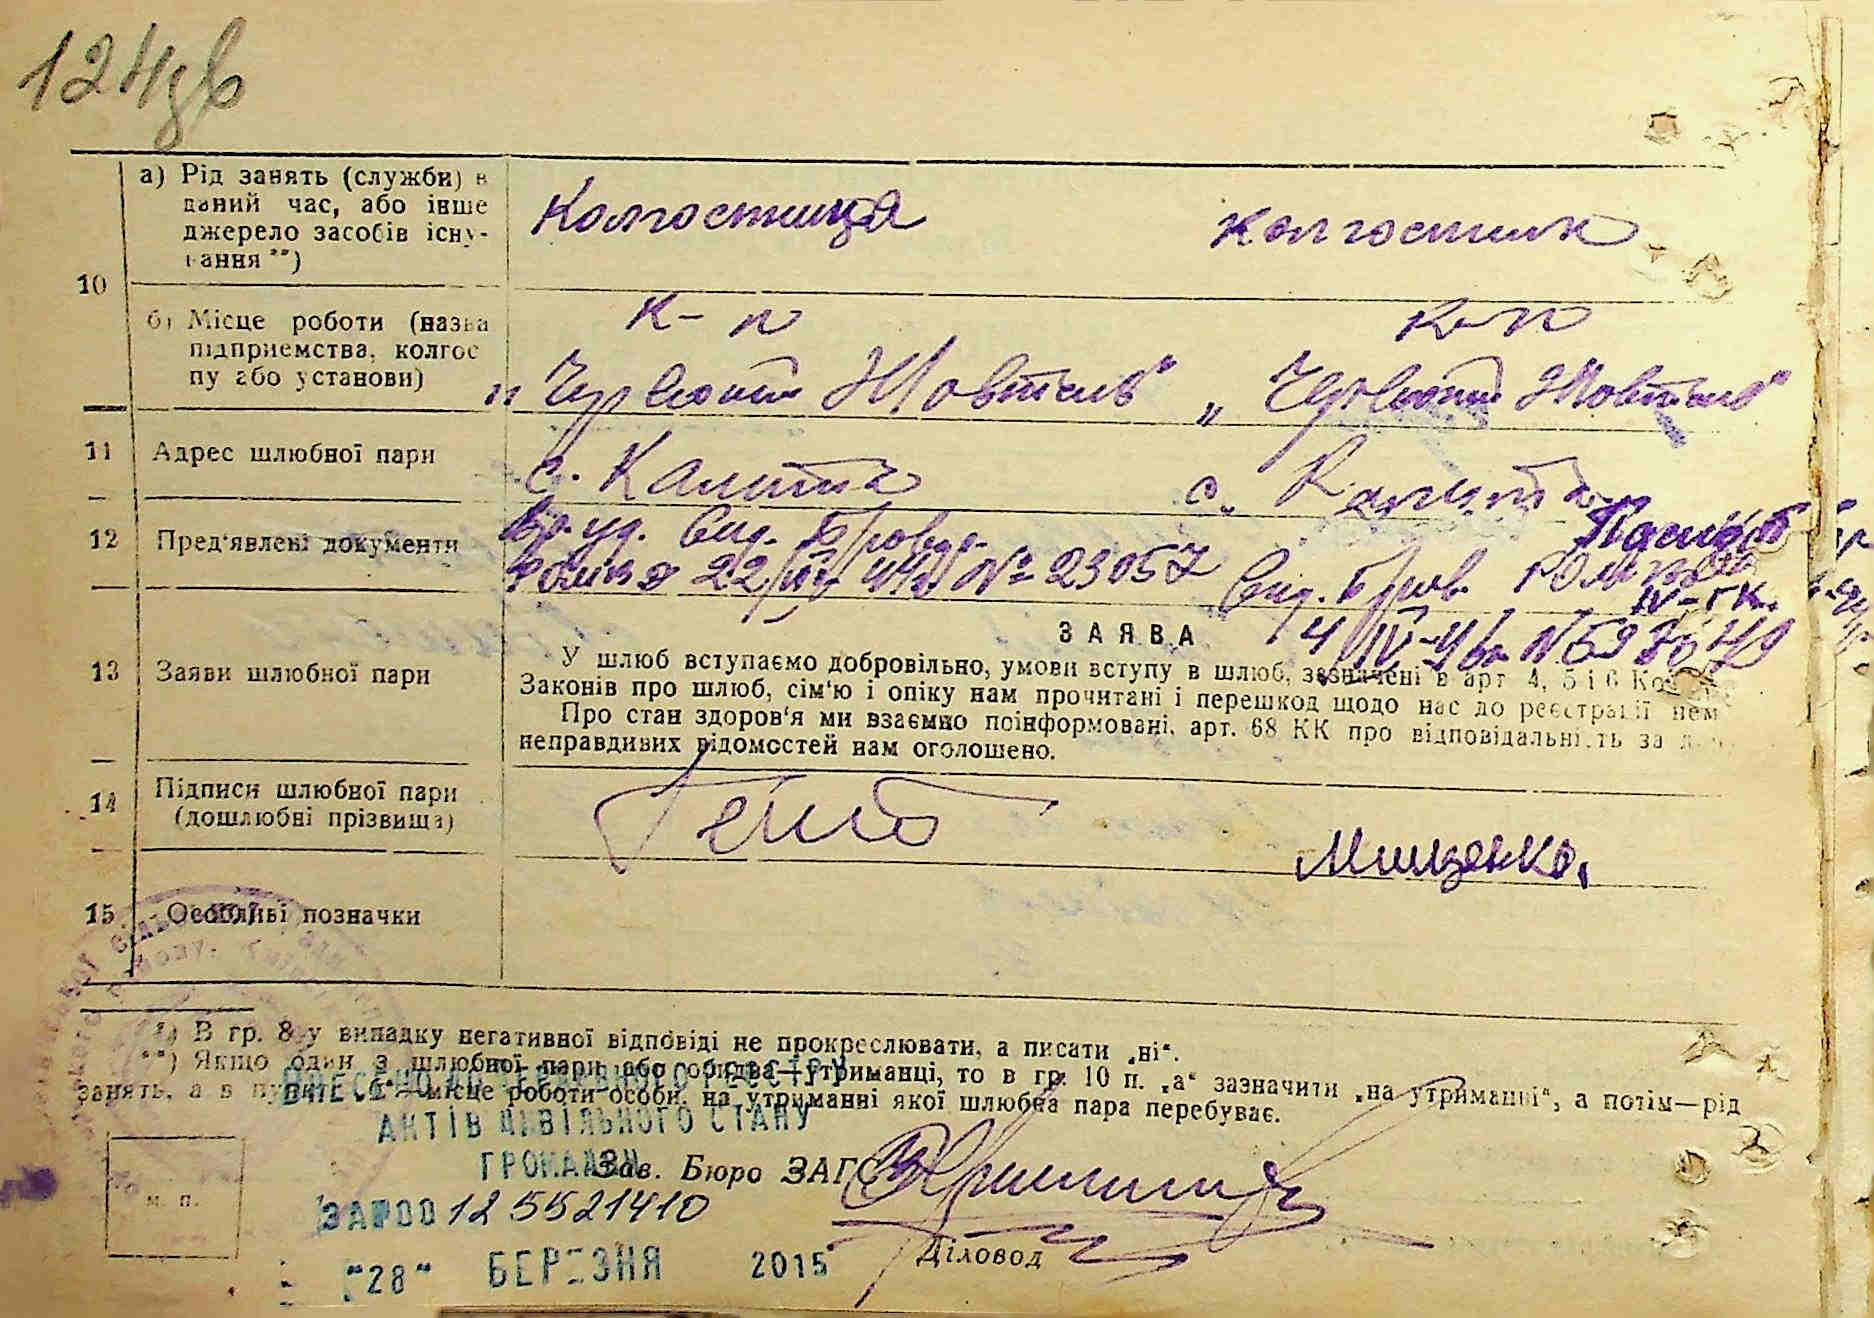 124зв
а) Рід занять (служби) в
даний час, або інше
джерело засобів існу-
вання **)
Колгоспниця колгоспник
10
б) Місце роботи (назва
підприємства, колгос
пу або установи)
к-п к-п
„Червоний Жовтень" „Червоний Жовтень"
11 Адрес шлюбної пари
с. Калита с. Калита
12 Пред'явлені документи
Вр. уд. вид. Бровар.
22/ № 23057
Паспорт
вид. Бров.
IV-ГК.
13 Заяви шлюбної пари
ЗАЯВА
У шлюб вступаємо добровільно, умови вступу в шлюб, зазначені в арт 4, 5 і 6
Законів про шлюб, сім'ю і опіку нам прочитані і перешкод щодо нас до реєстрації нем
Про стан здоров'я ми взаємно поінформовані, арт. 68 КК про відповідальність за
неправдивих відомостей нам оголошено.
14 Підписи шлюбної пари
(дошлюбні прізвища)
Мищенко,
15 Особливі позначки
*) В гр. 8 у випадку негативної відповіді не прокреслювати, а писати „ні".
**) Якщо один з шлюбної пари або обидва—утриманці, то в гр. 10 п. „а" зазначити „на утриманні", а потім—рід
занять, а в пункті „б"—місце роботи особи, на утриманні якої шлюбна пара перебуває.
ВНЕСЕНО ДО ДЕРЖАВНОГО РЕЄСТРУ
АКТІВ ЦИВІЛЬНОГО СТАНУ
ГРОМАДЯН
Зав. Бюро ЗАГС
м. п.
ЗА №00125521410
Діловод
"28" БЕРЕЗНЯ 2015